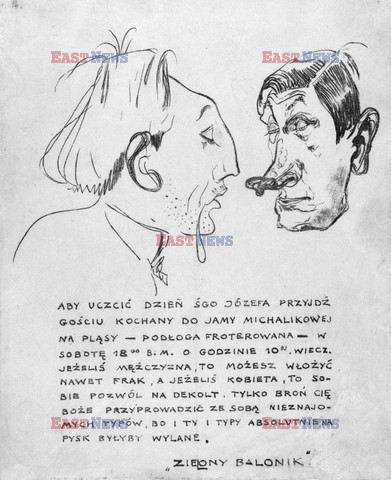 EASTNEWS
EASTNEWS
EASTNEWS
ABY UCZCIĆ DZIEŃ ŚGO JÓZEFA PRZYJDŹ
GOŚCIU KOCHANY DO JAMY MICHALIKOWEJ
NA PLĄSY — PODŁOGA FROTEROWANA — W
SOBOTĘ 18GO B.M. O GODZINIE 10EJ WIECZ.
JEŻELIŚ MĘŻCZYZNA, TO MOŻESZ WŁOŻYĆ
NAWET FRAK, A JEŻELIŚ KOBIETA, TO SO-
BIE POZWÓL NA DEKOLT. TYLKO BROŃ CIĘ
BOŻE PRZYPROWADZIĆ ZE SOBĄ NIEZNAJO-
MYCH TYPÓW, BO I TY I TYPY ABSOLUTNIE NA
PYSK BYŁYBY WYLANE.
EASTNEWS
EASTNEWS
„ZIELONY BALONIK"